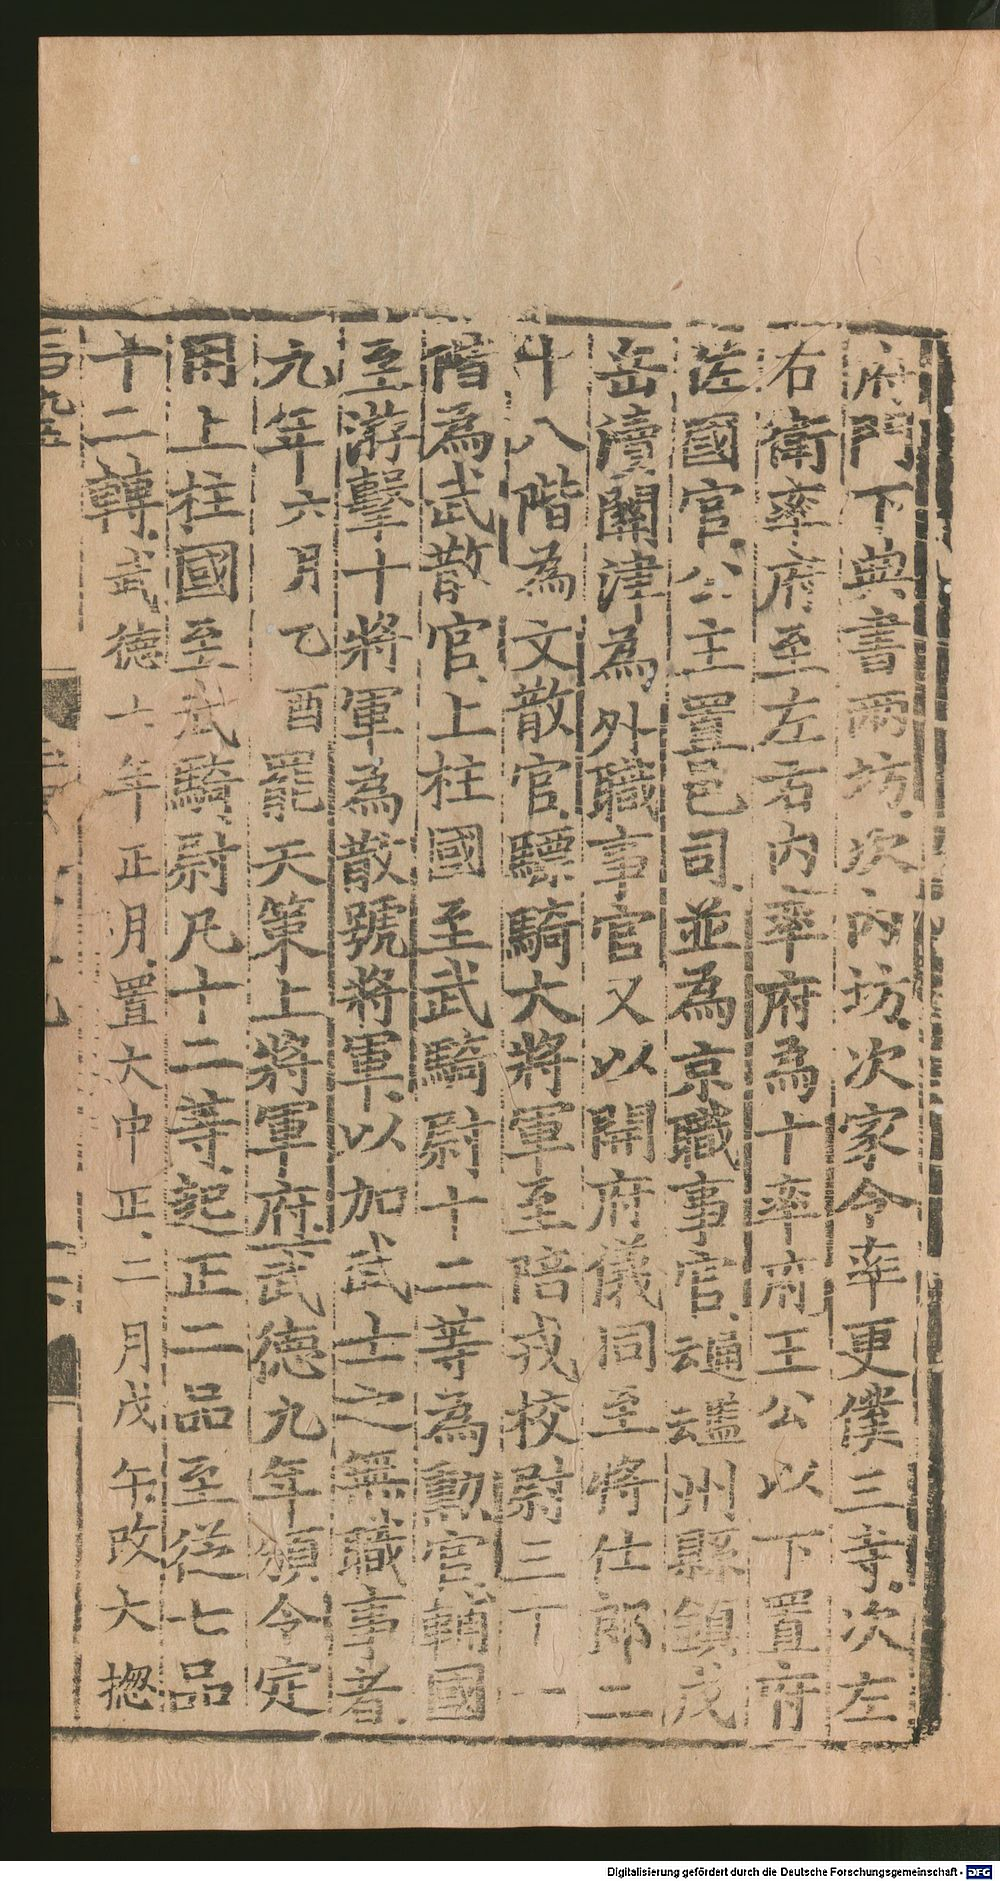 府門下典書兩坊次內坊次家令率更僕三寺次左
右衛率府至左右內率府為十率府王公以下置府
佐國官公主置邑司並為京職事官州縣鎮戍
岳瀆關津為外職事官又以開府儀同至將仕郎二
十八階為文散官驃騎大將軍至陪戎校尉三十一
階為武散官上柱國至武騎尉十二等為勳官輔國
至游擊十將軍為散號將軍以加武士之無職事者
九年六月乙酉罷天策上將軍府武德九年頒令定
用上柱國至武騎尉凡十二等起正二品至從七品
十二轉武德七年正月置大中正二月戊午改大揔
Digitalisierung gefördert durch die Deutsche Forschungsgemeinschaft - DFG